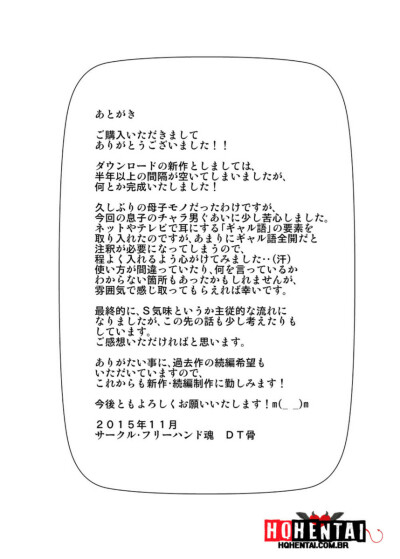 あとがき
ご購入いただきまして
ありがとうございました！！
ダウンロードの新作としましては、
半年以上の間隔が空いてしまいましたが、
何とか完成いたしました！
久しぶりの母子モノだったわけですが、
今回の息子のチャラ男ぐあいに少し苦心しました。
ネットやテレビで耳にする「ギャル語」の要素を
取り入れたのですが、あまりにギャル語全開だと
注釈が必要になってしまうので、
程よく入れるよう心がけてみました‥(汗)
使い方が間違っていたり、何を言っているか
わからない箇所もあったかもしれませんが、
雰囲気で感じ取ってもらえれば幸いです。
最終的に、Ｓ気味というか主従的な流れに
なりましたが、この先の話も少し考えたりも
しています。
ご感想いただければと思います。
ありがたい事に、過去作の続編希望も
いただいていますので、
これからも新作・続編制作に勤しみます！
今後ともよろしくお願いいたします！m(_ _)m
２０１５年１１月
サークル・フリーハンド魂　ＤＴ骨
HQHENTAI
HQHENTAI.COM.BR